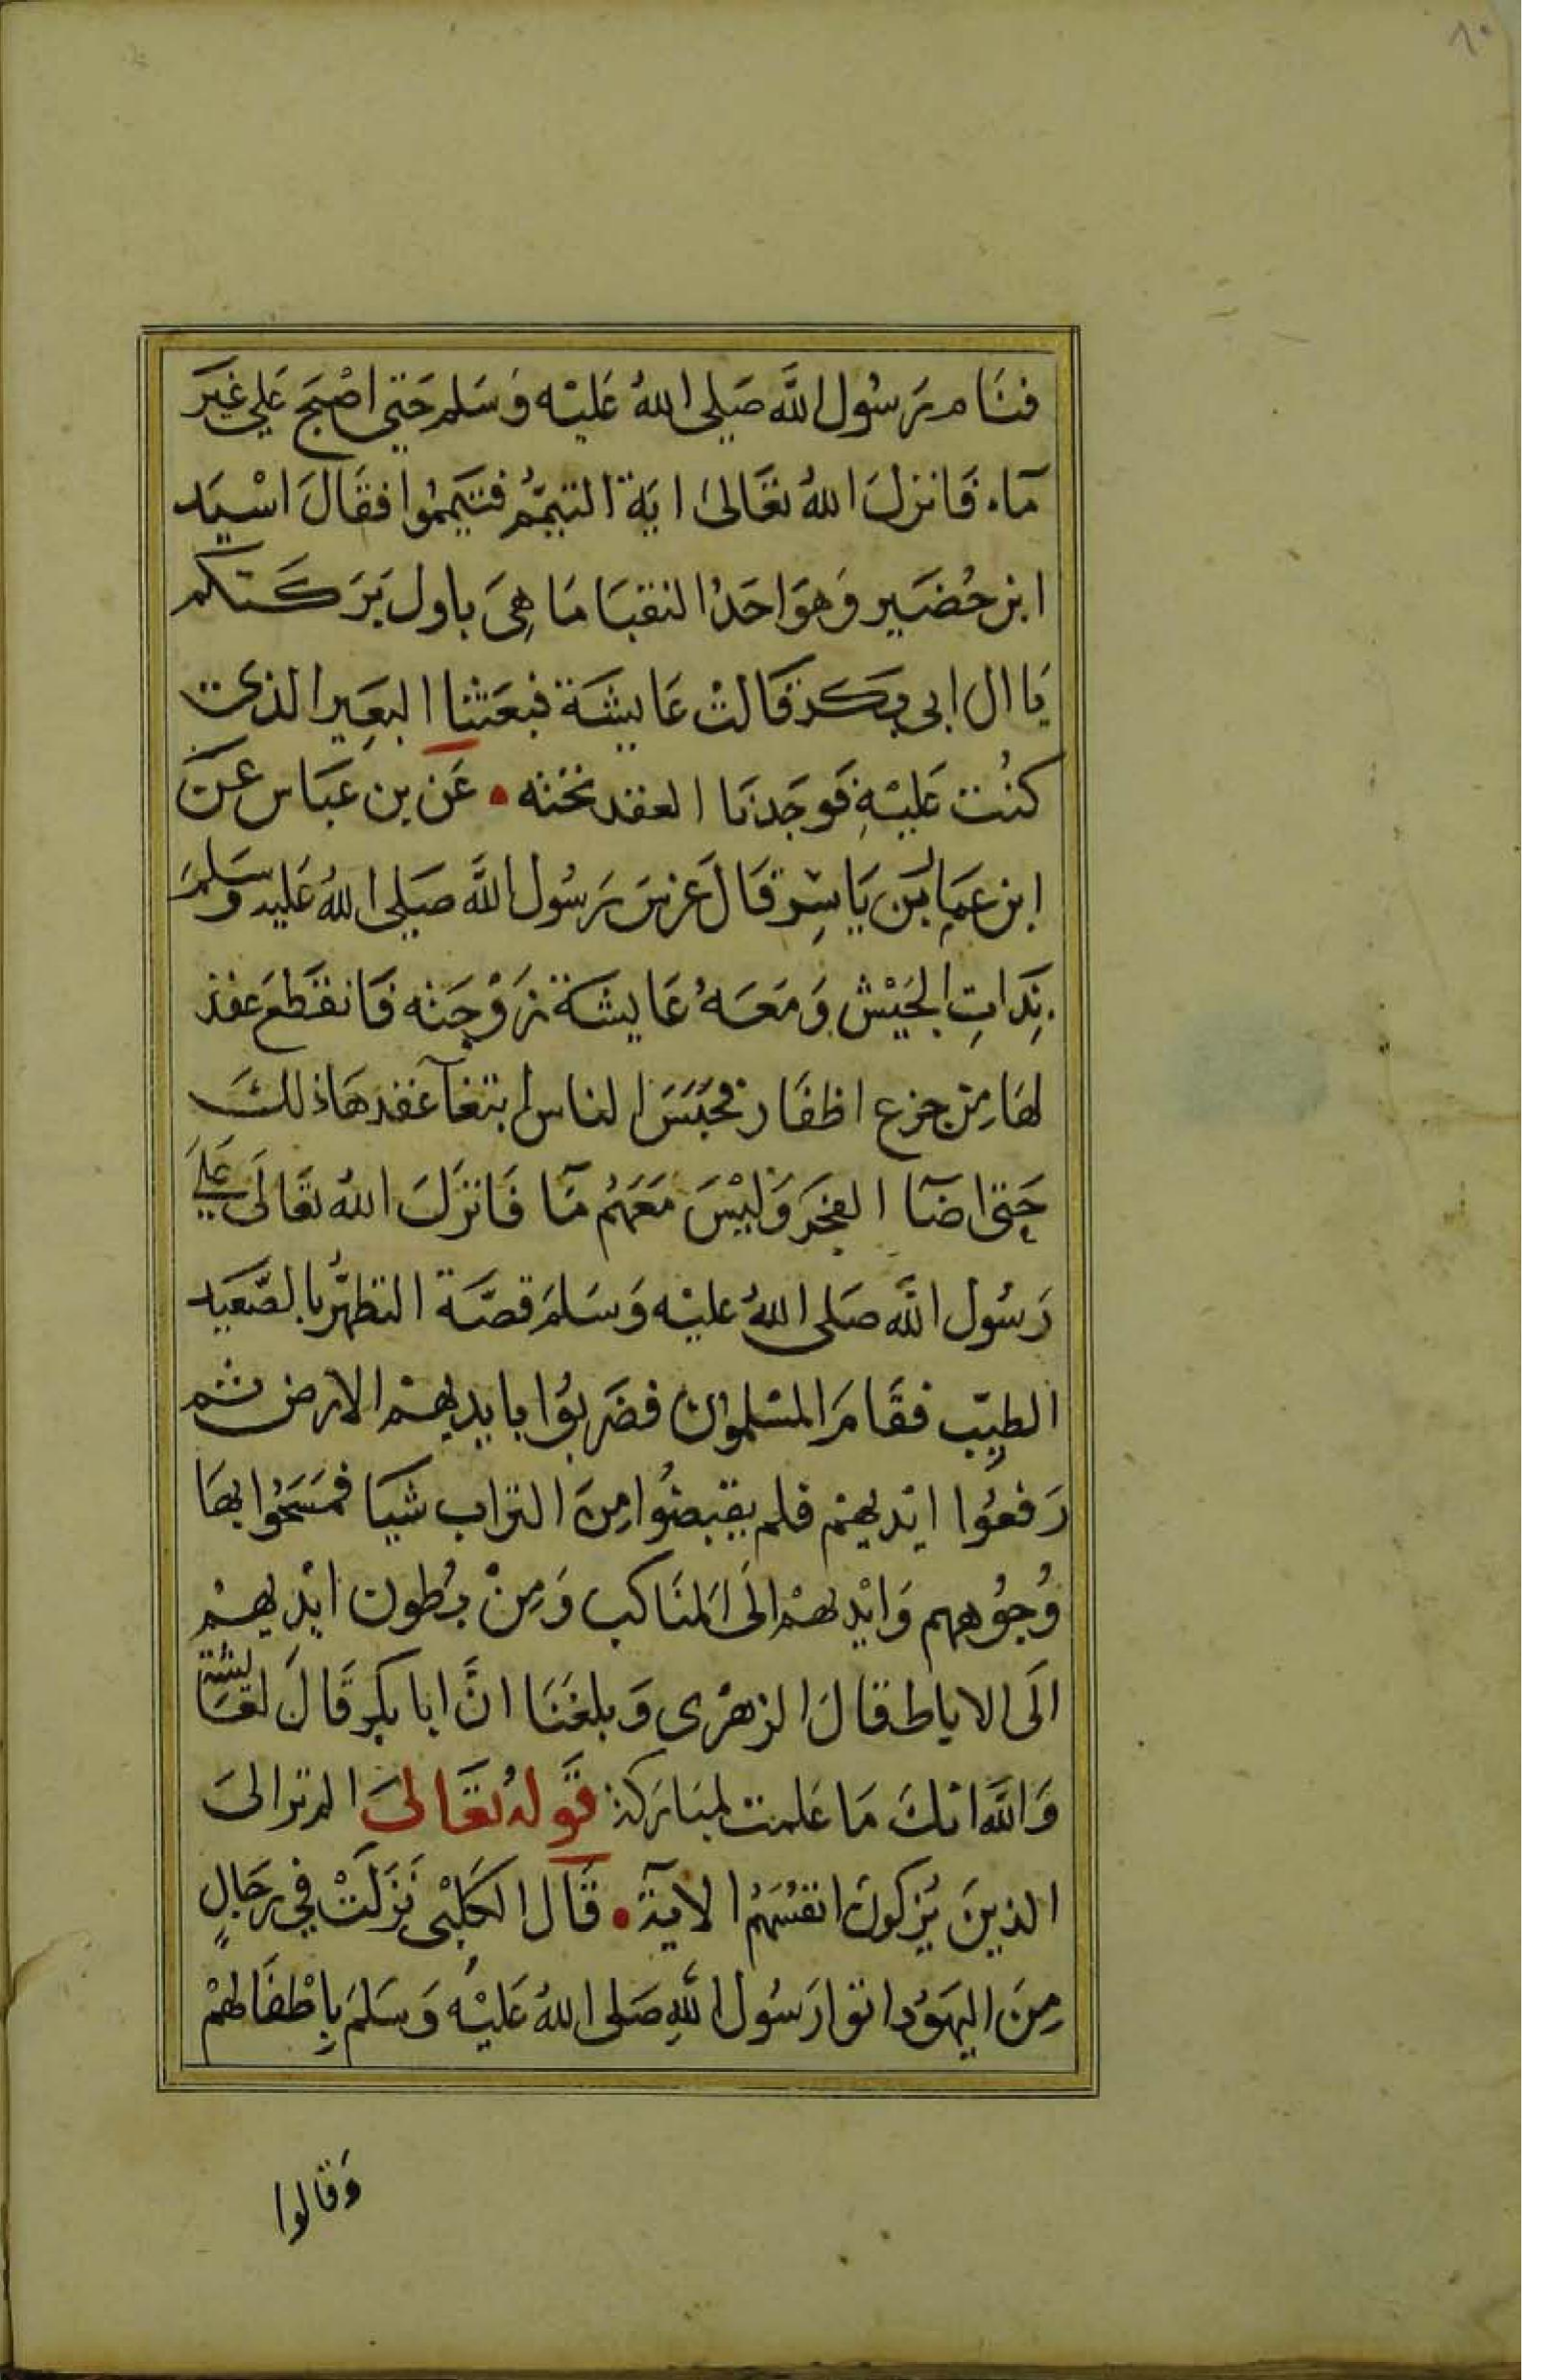 ٨٠
فنَام رَسُول اللَّه صَلى اللهُ عَليْه وَسَلم حَتى اصْبحَ عَلى غَيْر
مآء فَانزلَ اللهُ تعَالىٰ ايَة التيمّمُ فتيَمموُا فقَالَ اسْيَد
ابن حُضَير وَهوَ احَدُ النقبَا مَا هِىَ باول بَرَكَتكم
يَا ال ابى بكر قَالتْ عَايشَة فبعَثنا البعَير الذى
كنُت عَليْهِ فَوجَدنَا العقد تحْته • عَن بن عَبَاس عَن
ابن عَمار بَن يَاسِر قَالَ عرسَ رَسُول اللَّه صَلى اللهُ عَليه وَسَلمَ
بِذَاتِ الجَيْش وَمَعَهُ عَايشَة زَوْجَته فَانقَطعَ عقد
لهَا مِن جزع اظفَار فحبَسَ الناس ابتغآ عقدهَا ذلك
حَتى اضَآ الفجَر وَليْسَ مَعَهُم مَآ فَانزَلَ اللهُ تعَالَى عَلَى
رَسُول اللَّه صَلى اللهُ عليْه وَسَلمَ قصَّة التطهّرُ بالصَّعَيد
الطيِّب فقَامَ المسْلموُن فضَربوُا بايديهمْ الارض ثم
رَفعوُا ايْديهمْ فلم يقبضُوا مِنَ التراب شيَا فمَسَحُوا بهَا
وُجُوههم وَايْديهمْ الَى المنَاكب وَمِنْ بُطون ايْديهمْ
الَى الاباط قالَ الزهْرى وَبلغنَا انَّ ابا بكر قَالَ لعَايشة
وَاللَّه انكَ مَا عَلمت لمبَاركة قَولهُ تعَالىَ الم تر الىَ
الذينَ يُزكونَ انفسَهُم الآية • قَال الكَلبْى نَزلَتْ فى رجَالٍ
مِنَ اليهَوُد اتوا رَسُول اللَّهِ صَلى اللهُ عَليْه وَسَلمَ بِاطْفَالهمْ
وَقالوا